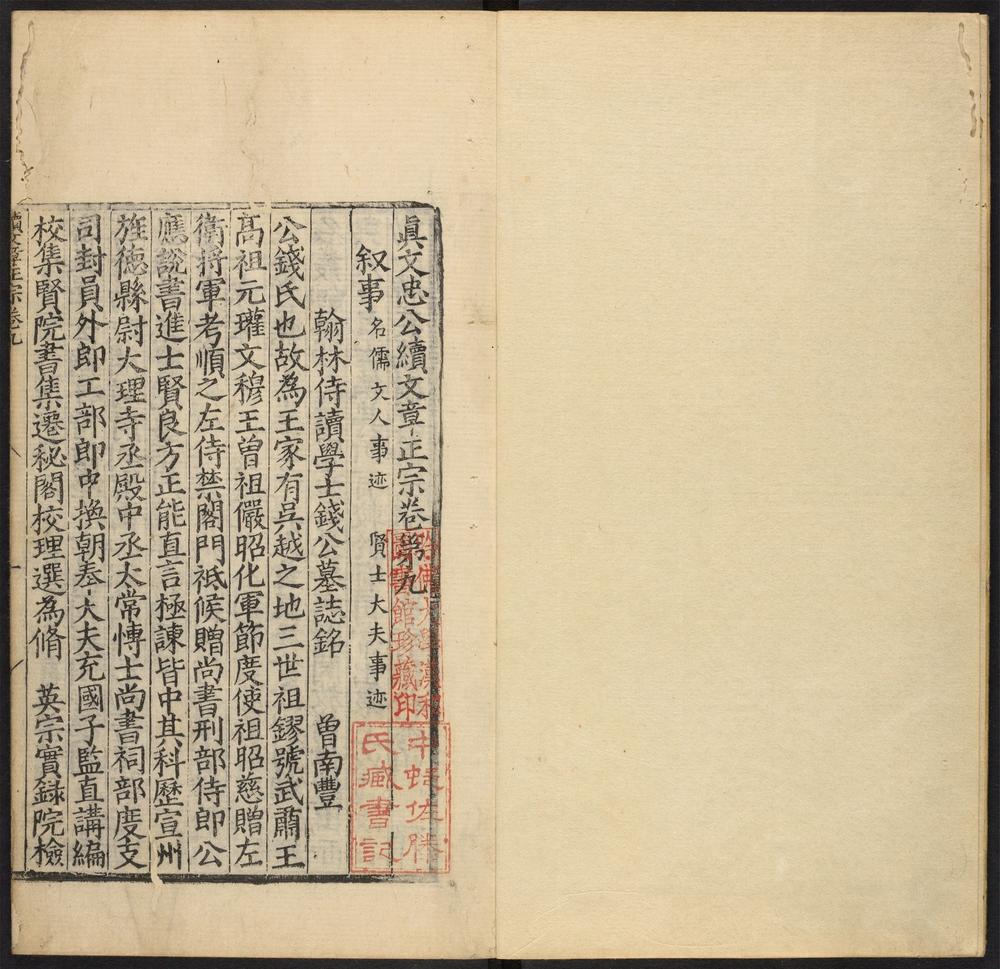 眞文忠公續文章正宗卷第九
叙事 名儒文人事迹 賢士大夫事迹
翰林侍讀學士錢公墓誌銘 曾南豐
公錢氏也故為王家有吳越之地三世祖鏐號武肅王
髙祖元瓘文穆王曾祖儼昭化軍節度使祖昭慈贈左
衛將軍考順之左侍禁閤門祗候贈尚書刑部侍郎公
應說書進士賢良方正能直言極諫皆中其科歷宣州
旌德縣尉大理寺丞殿中丞太常愽士尚書祠部度支
司封員外郎工部郎中換朝奉大夫充國子監直講編
校集賢院書集遷秘閣校理選為脩 英宗實録院檢
續文章正宗卷九
哈佛大學漢和
圖書館珍藏印
佐
氏藏書記